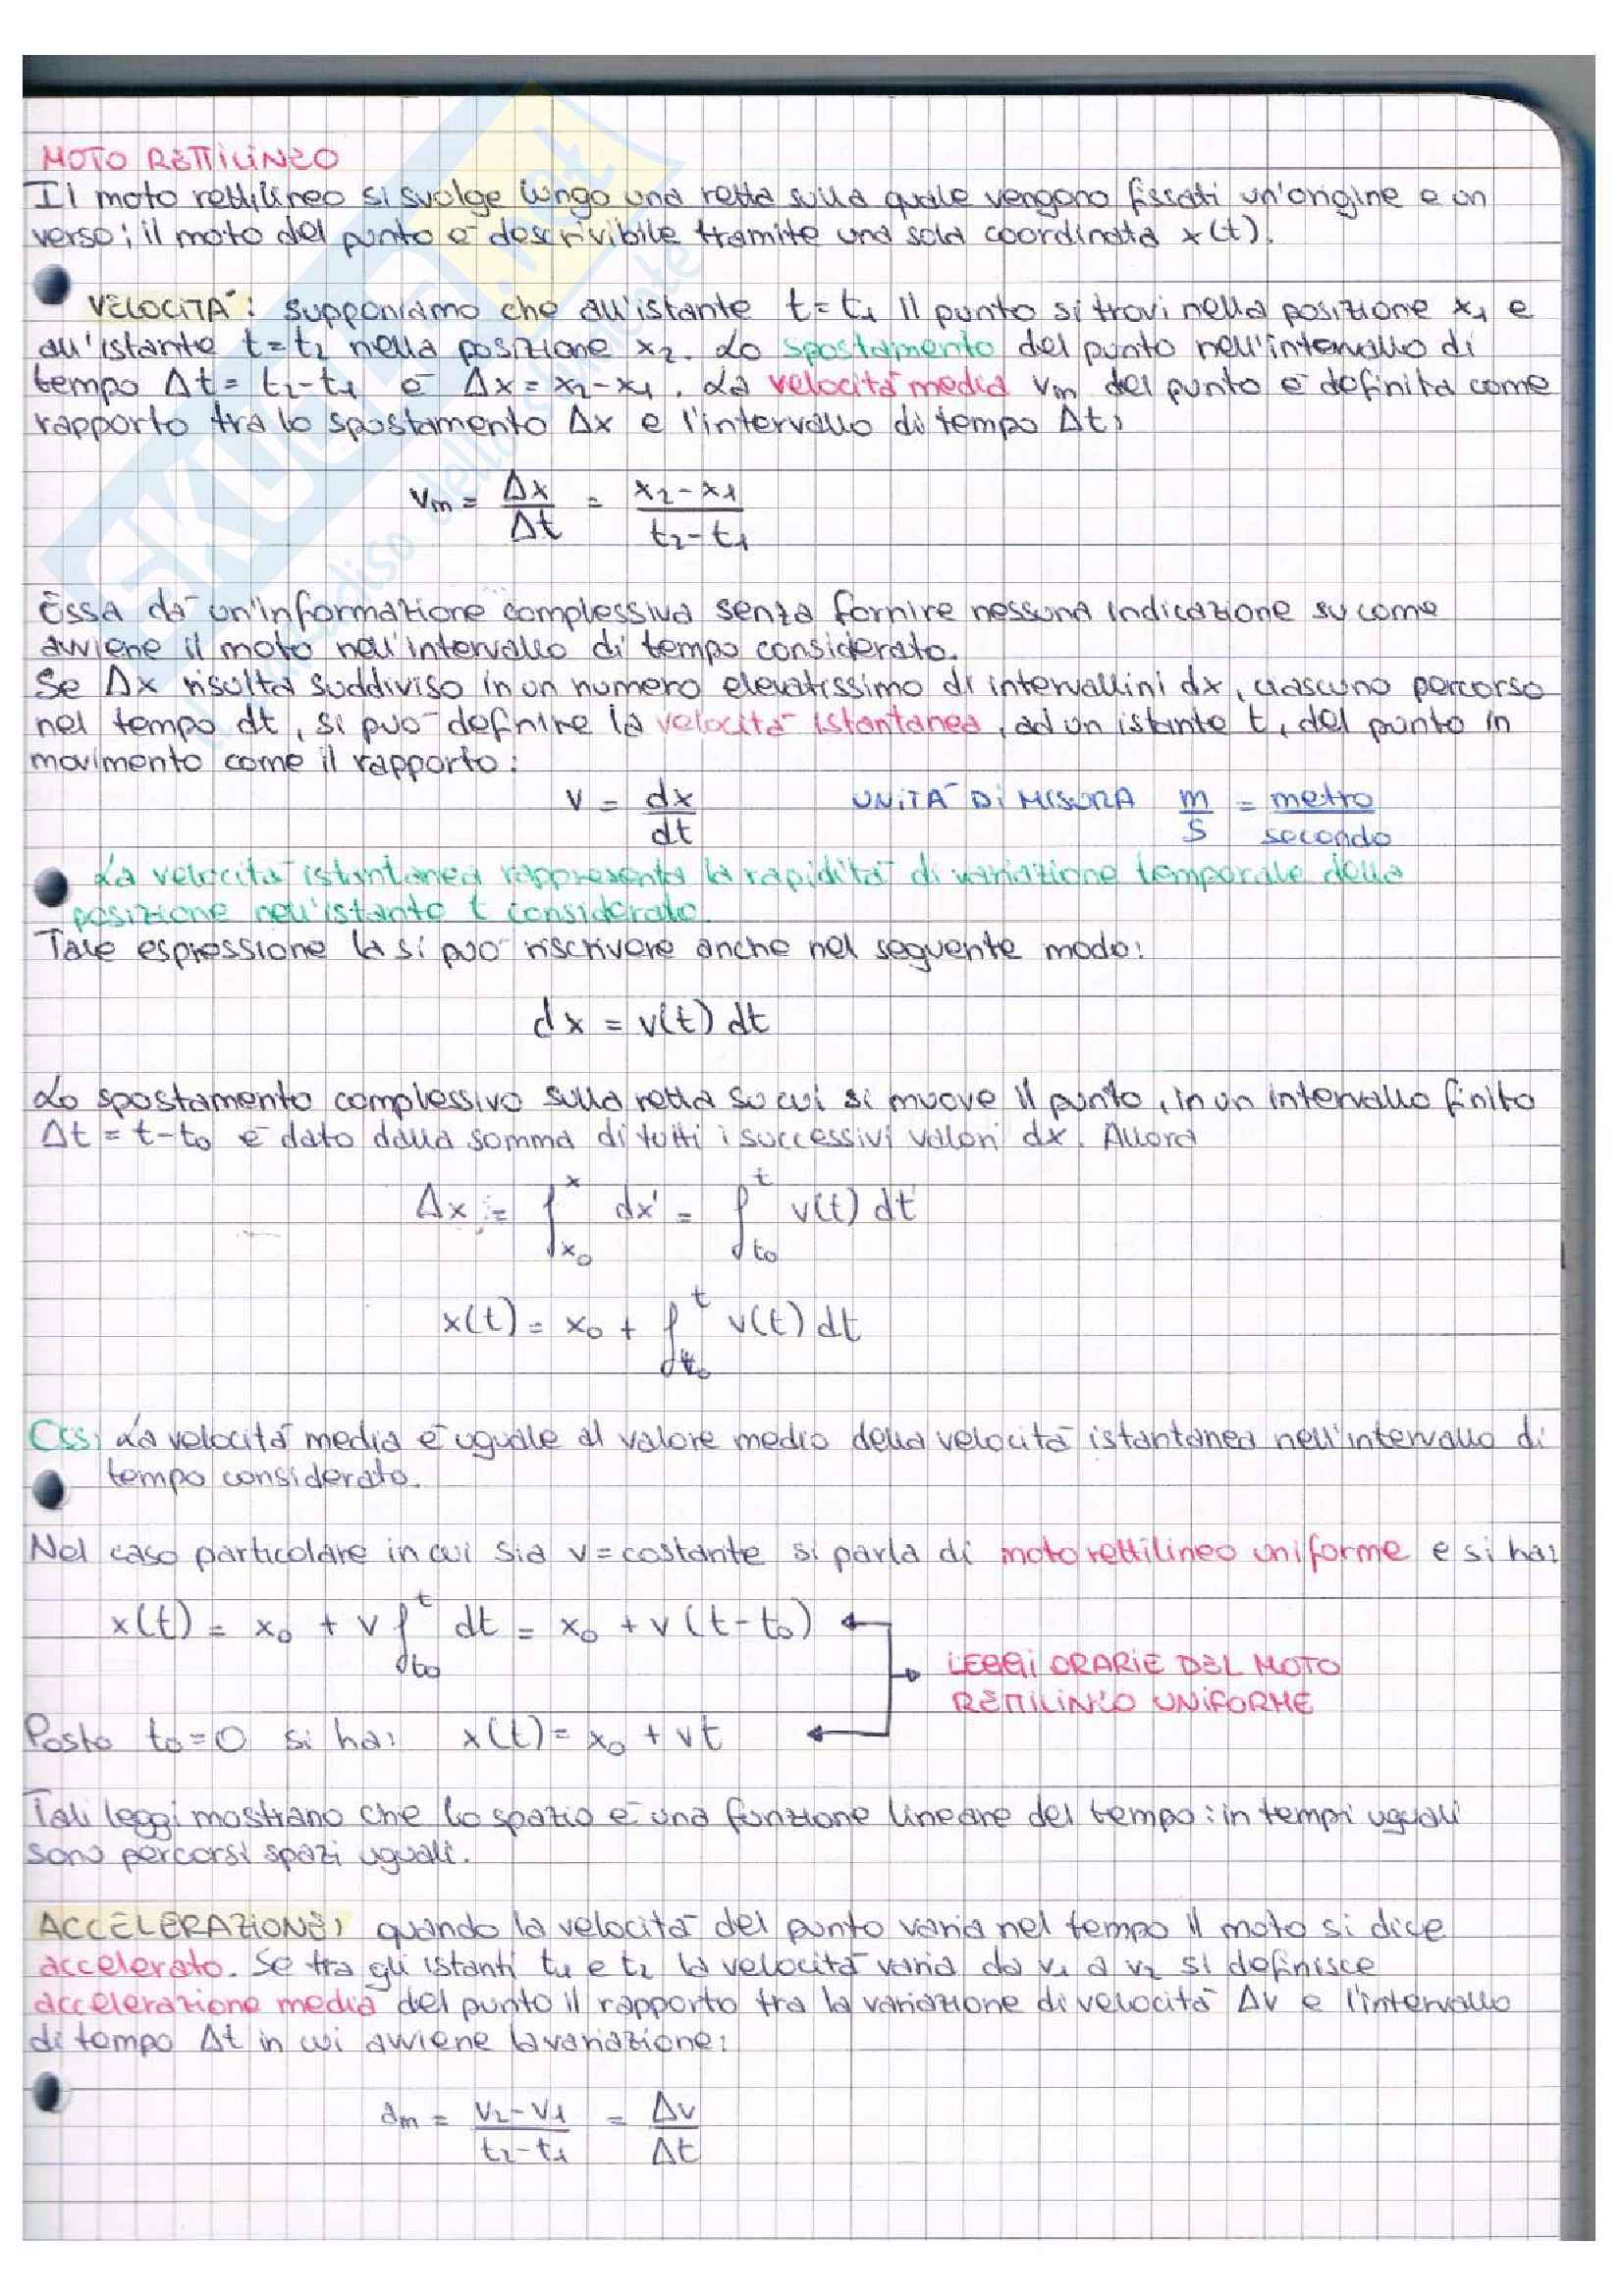 MOTO RETTILINEO
Il moto rettilineo si svolge lungo una retta sulla quale vengono fissati un'origine e un
verso; il moto del punto è descrivibile tramite una sola coordinata x(t).
VELOCITÀ: supponiamo che all'istante t=t₁ il punto si trovi nella posizione x₁ e
all'istante t=t₂ nella posizione x₂. Lo spostamento del punto nell'intervallo di
tempo Δt= t₂-t₁ è Δx= x₂-x₁. La velocità media vₘ del punto è definita come
rapporto tra lo spostamento Δx e l'intervallo di tempo Δt:
vₘ = Δx/Δt = (x₂-x₁)/(t₂-t₁)
Essa dà un'informazione complessiva senza fornire nessuna indicazione su come
avviene il moto nell'intervallo di tempo considerato.
Se Δx risulta suddiviso in un numero elevatissimo di intervallini dx, ciascuno percorso
nel tempo dt, si può definire la velocità istantanea, ad un istante t, del punto in
movimento come il rapporto:
v = dx/dt UNITÀ DI MISURA m/s = metro/secondo
La velocità istantanea rappresenta la rapidità di variazione temporale della
posizione nell'istante t considerato.
Tale espressione la si può riscrivere anche nel seguente modo:
dx = v(t) dt
Lo spostamento complessivo sulla retta su cui si muove il punto, in un intervallo finito
Δt = t-t₀ è dato dalla somma di tutti i successivi valori dx. Allora
Δx = ∫ₓ₀ˣ dx' = ∫ₜ₀ᵗ v(t) dt
x(t) = x₀ + ∫ₜ₀ᵗ v(t) dt
Oss: La velocità media è uguale al valore medio della velocità istantanea nell'intervallo di
tempo considerato.
Nel caso particolare in cui sia v=costante si parla di moto rettilineo uniforme e si ha:
x(t) = x₀ + v ∫ₜ₀ᵗ dt = x₀ + v (t-t₀)
LEGGI ORARIE DEL MOTO
RETTILINEO UNIFORME
Posto t₀=0 si ha: x(t) = x₀ + vt
Tali leggi mostrano che lo spazio è una funzione lineare del tempo: in tempi uguali
sono percorsi spazi uguali.
ACCELERAZIONE: quando la velocità del punto varia nel tempo il moto si dice
accelerato. Se tra gli istanti t₁ e t₂ la velocità varia da v₁ a v₂ si definisce
accelerazione media del punto il rapporto tra la variazione di velocità Δv e l'intervallo
di tempo Δt in cui avviene la variazione:
aₘ = (v₂-v₁)/(t₂-t₁) = Δv/Δt